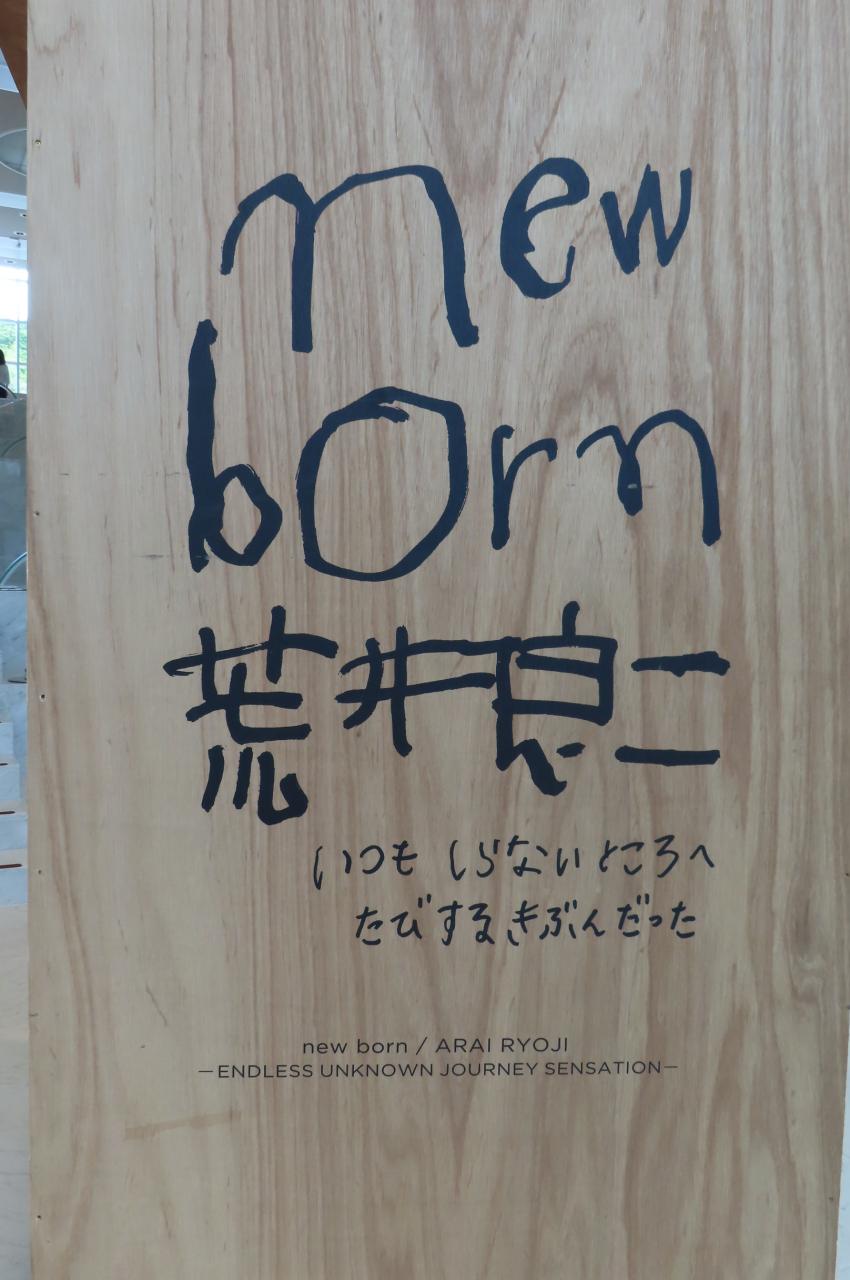 new
born
荒井良二
いつも しらない ところへ
たびする きぶんだった
new born / ARAI RYOJI
—ENDLESS UNKNOWN JOURNEY SENSATION—